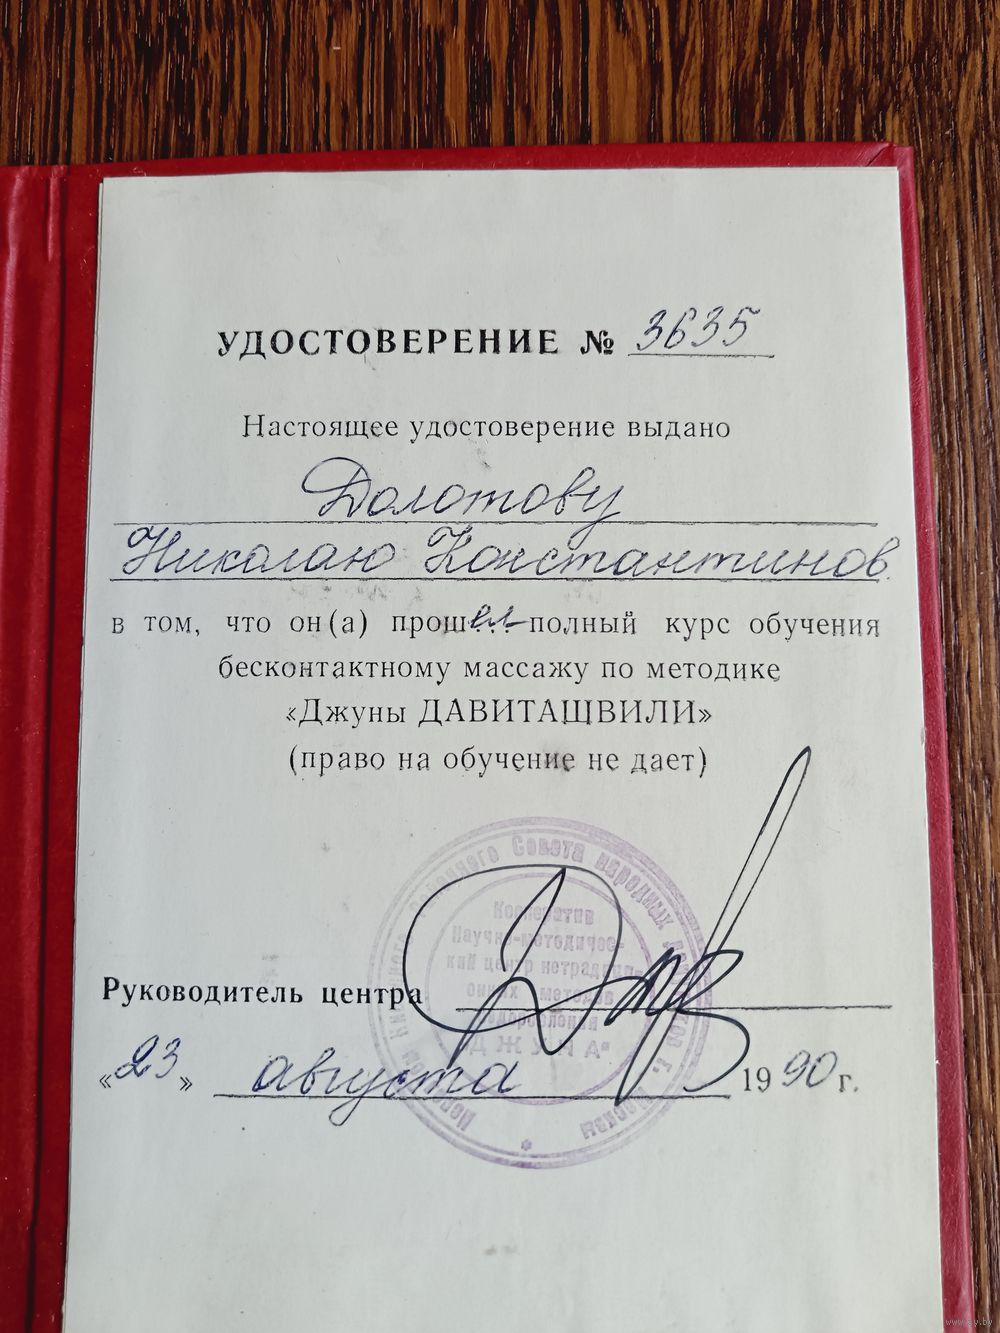 УДОСТОВЕРЕНИЕ № 3635
Настоящее удостоверение выдано
Долотову
Николаю Константинов.
в том, что он(а) прош..ел..полный курс обучения
бесконтактному массажу по методике
«Джуны ДАВИТАШВИЛИ»
(право на обучение не дает)
Совета народных
Кооператив
Научно-методичес-
кий центр нетрадици-
онных методов
ДЖУНА"
г. Москвы
Руководитель центра
«23» августа 1990 г.